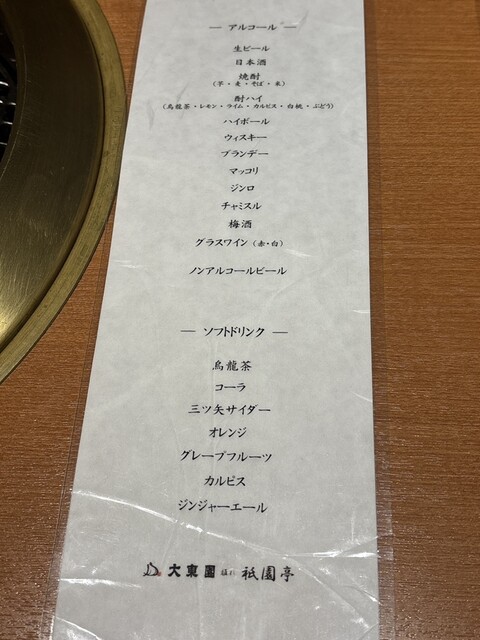 ― アルコール ―
生ビール
日本酒
焼酎
（芋・麦・そば・米）
酎ハイ
（烏龍茶・レモン・ライム・カルピス・白桃・ぶどう）
ハイボール
ウィスキー
ブランデー
マッコリ
ジンロ
チャミスル
梅酒
グラスワイン（赤・白）
ノンアルコールビール
― ソフトドリンク ―
烏龍茶
コーラ
三ツ矢サイダー
オレンジ
グレープフルーツ
カルピス
ジンジャーエール
大東園 祇園亭